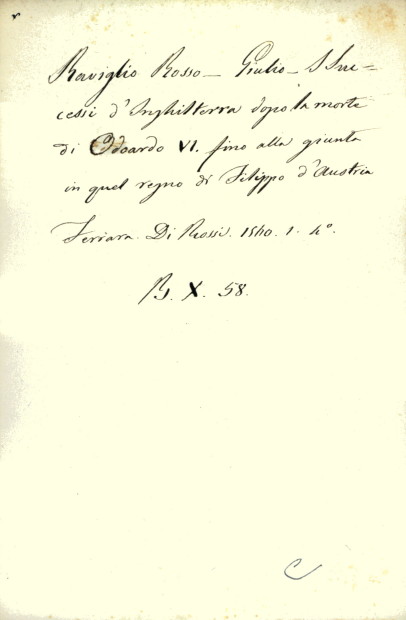 Raviglio Rosso - Giulio - I Suc=
cessi d'Inghilterra dopo la morte
di Odoardo VI. fino alla giunta
in quel regno di Filippo d'Austria
Ferrara. Di Rossi. 1560. 1. 4°.
B. X. 58.
C